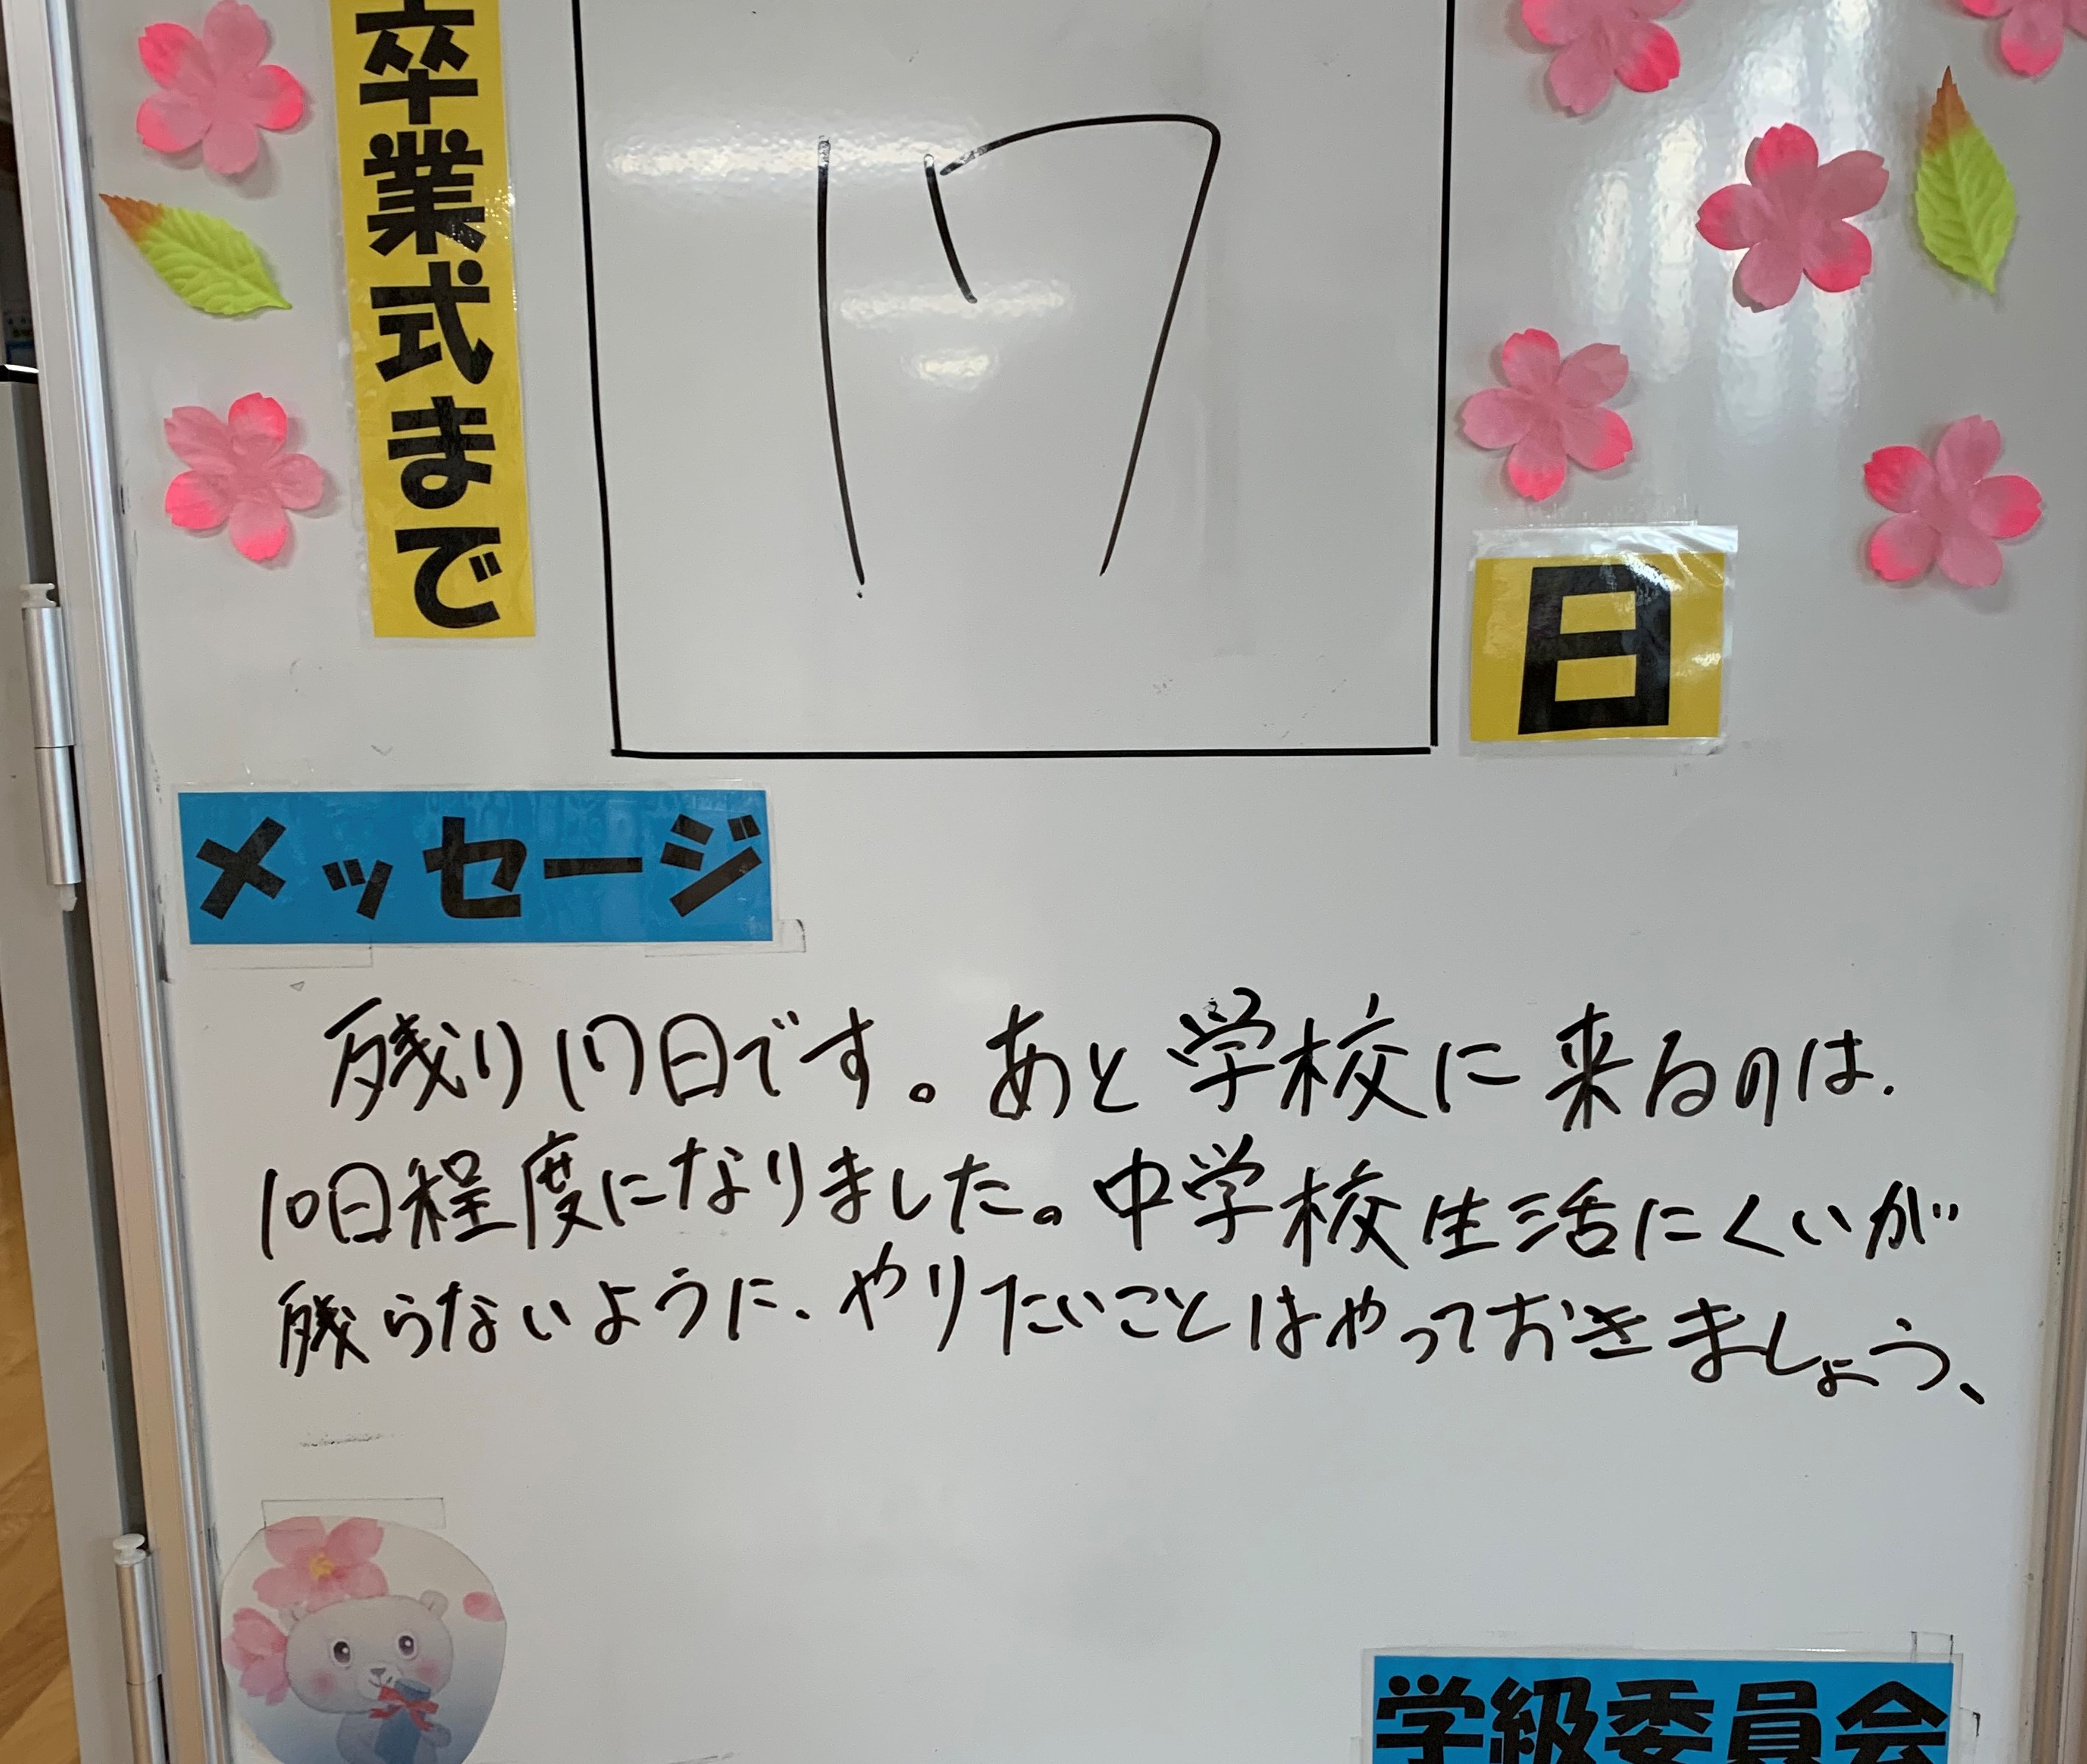 卒業式まで
17
日
メッセージ
残り17日です。あと学校に来るのは、
10日程度になりました。中学校生活にくいが
残らないように、やりたいことはやっておきましょう、
学級委員会